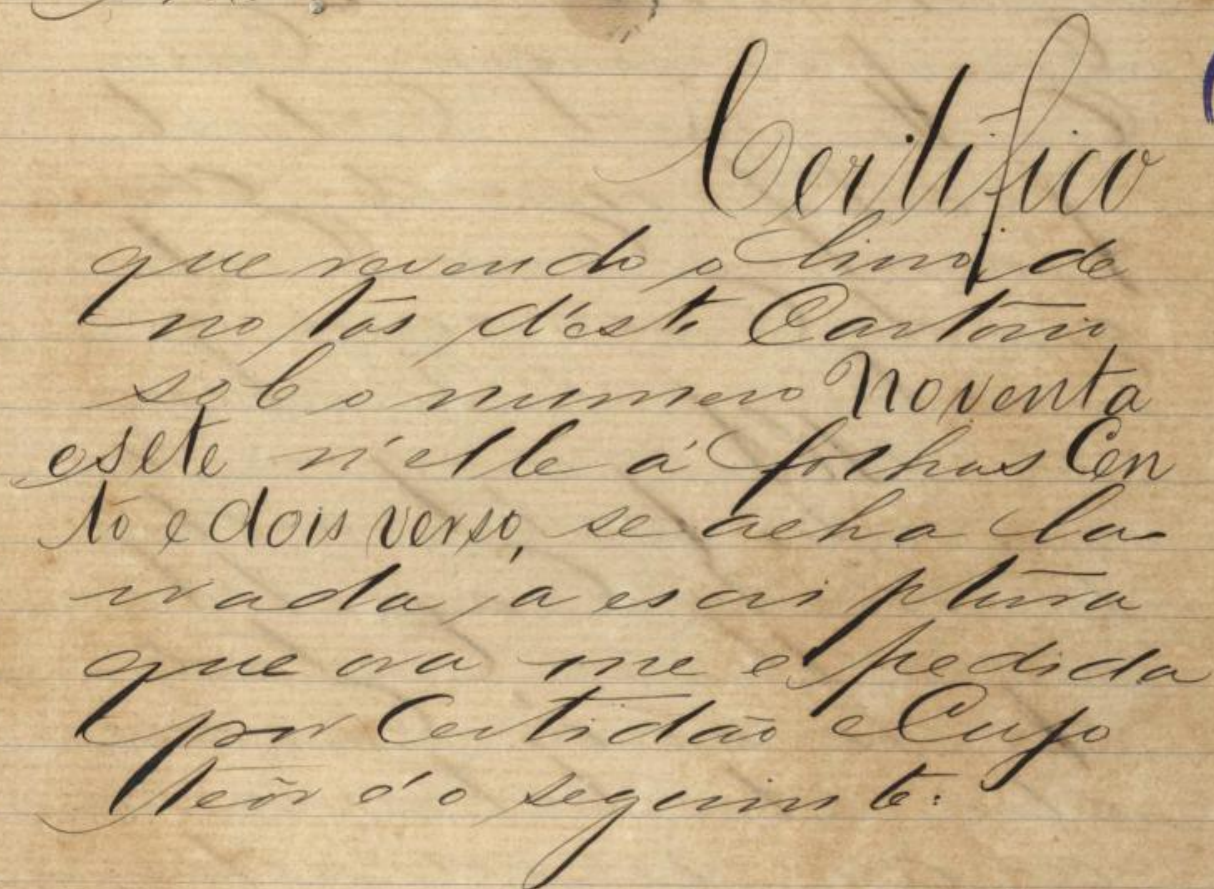 Certifico
que revendo o livro de
notas d'este Cartorio
sob o numero Noventa
e sete n'elle á folhas Cen
to e dois verso, se acha la-
vrada, a escriptura
que ora me é pedida
por Certidão e Cujo
teôr é o seguinte: